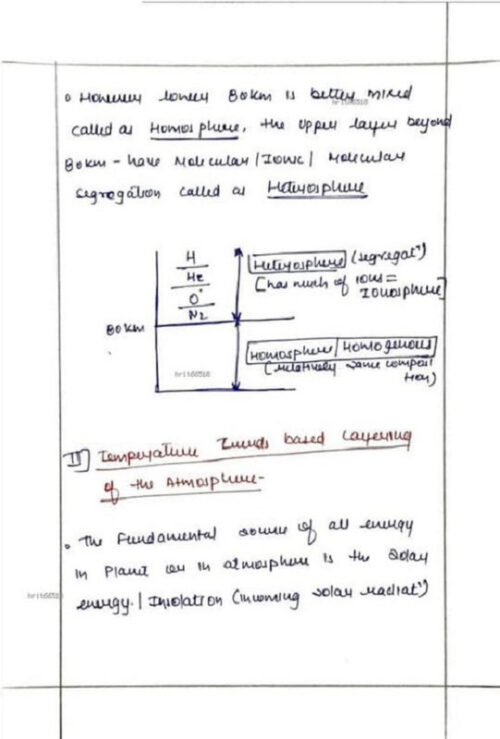 • However lower 80km is better mixed
hrithss18
called as Homosphere, the upper layer beyond
80km - have Molecular / Ionic / Molecular
segregation called as Heterosphere
H
He
O
N2
80km
Heterosphere (segregatⁿ)
[has much of ions =
Ionosphere]
Homosphere / Homogenous
(relatively same composi
tion)
II] Temperature Trends based Layering
of the Atmosphere-
• The Fundamental source of all energy
in Planet or in atmosphere is the Solar
energy. / Insolation (incoming solar radiatⁿ)